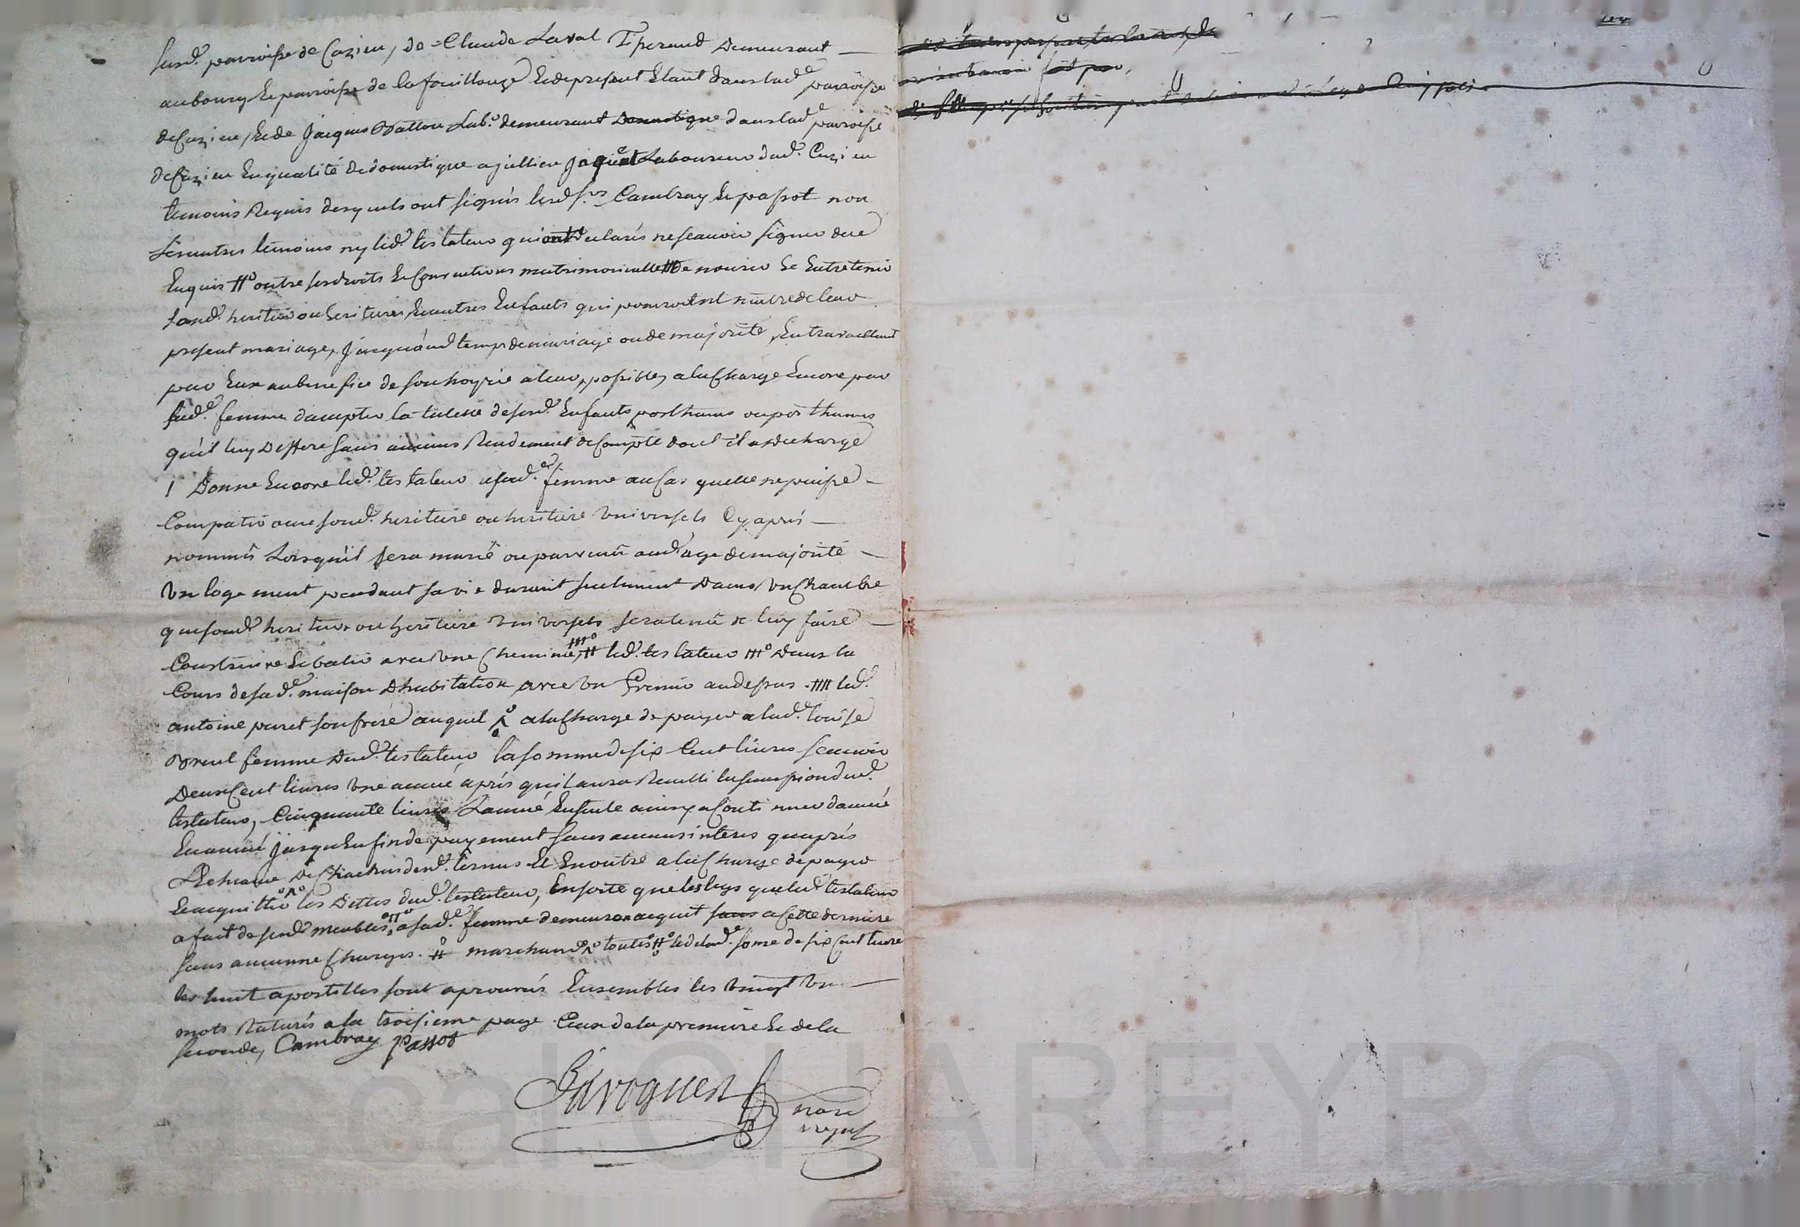 susd.e parroisse de Cuzieu, de Claude Laval Tisserand Demeurant
au bourg & parroisse de la fouillouze & de present Etant dans lad.e parroisse
de Cuzieu, & de Jacques Vallon Lab.r demeurant Domestique dans lad.e parroisse
de Cuzieu En qualité de domestique a jullien jaquet Laboureur dud. Cuzieu
temoins Requis desquels ont signés lesd. s.rs Cambray & passot non
Les autres temoins ny led. testateur qui ont declarés ne scavoir signer de ce
Enquis outre ses droits & Conventions matrimonialles de nourir & Entretenir
sond. heritier ou heritiere & autres Enfants qui pourroient naitre de leur
present mariage, jusqu'aud temps de mariage ou de majorité, En travaillant
pour Eux au benefice de son hoyrie a leur possible, a la Charge Encore par
sad.e femme d'accepter la tutelle de sesd. Enfants posthume ou posthumes
qu'il luy Deffere sans aucuns Rendement de Compte dont il a decharge
Donne Encore led. testateur a sad.e femme au Cas quelle ne puisse
Compatir avec sond. heritier ou heritiere universels Cy après
nommés Lorsqu'il sera marié ou parvenu aud. age de majorité
un logement pendant sa vie durant seulement Dans un Chambre
que sond. heritier ou heritiere universels sera tenu de luy faire
Construire & batir avec une Cheminée led. testateur Dans la
Cours de sad.e maison D'habitation avec un Grenier au dessus led.
antoine paret son frere auquel a la Charge de payer a lad. Louise
femme Dud. testateur la somme de six Cent livres scavoir
Deux Cent livres une année après qu'il aura Recueilli la succession dud.
testateur, Cinquante livres L'année Ensuite ainsy a Continuer d'année
En année jusqu'En fin de payement sans aucuns interes qu'après
L'Echeance De Chacun desd. termes Et En outre a la Charge de payer
& acquitter les Dettes dud. testateur, En sorte que les legs que led. testateur
a fait de sesd. meubles a sad.e femme demeurera acquit sans a cette derniere
sans aucunne Charges. marchand toutes lad. somme de six Cent livres
les huit apostilles sont aprouvés Ensembles les vingt un
mots Raturés a la troisieme page Ceux de la premiere & de la
seconde, Cambray Passot
not.e
royal
Pascal CHAREYRON